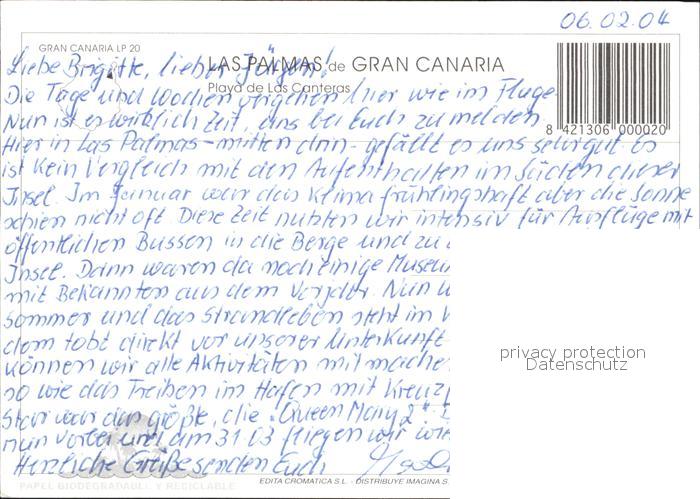 06.02.04
GRAN CANARIA LP 20
LAS PALMAS de GRAN CANARIA
Playa de Las Canteras
8 421306 000020
Liebe Brigitte, lieber Jürgen!
Die Tage und Wochen vergehen hier wie im Fluge.
Nun ist es wirklich Zeit, uns bei Euch zu melden.
Hier in Las Palmas - mitten drin - gefällt es uns sehr gut. Es
ist kein Vergleich mit den Aufenthalten im Süden dieser
Insel. Im Januar war das Klima frühlingshaft aber die Sonne
schien nicht oft. Diese Zeit nutzten wir intensiv für Ausflüge mit
öffentlichen Bussen in die Berge und zu
Insel. Dann waren da noch einige Museu
mit Bekannten aus dem Vorjahr. Nun
Sommer und das Strandleben steht im
dem tobt direkt vor unserer Unterkunft
können wir alle Aktivitäten mitmache
so wie das Treiben im Hafen mit Kreuz
Star war das größte, die "Queen Mary 2".
nun vorbei und am 31.03 fliegen wir wie
Herzliche Grüße senden Euch
privacy protection
Datenschutz
PAPEL BIODEGRADABLE Y RECICLABLE
EDITA CROMATICA S.L. - DISTRIBUYE IMAGINA S.